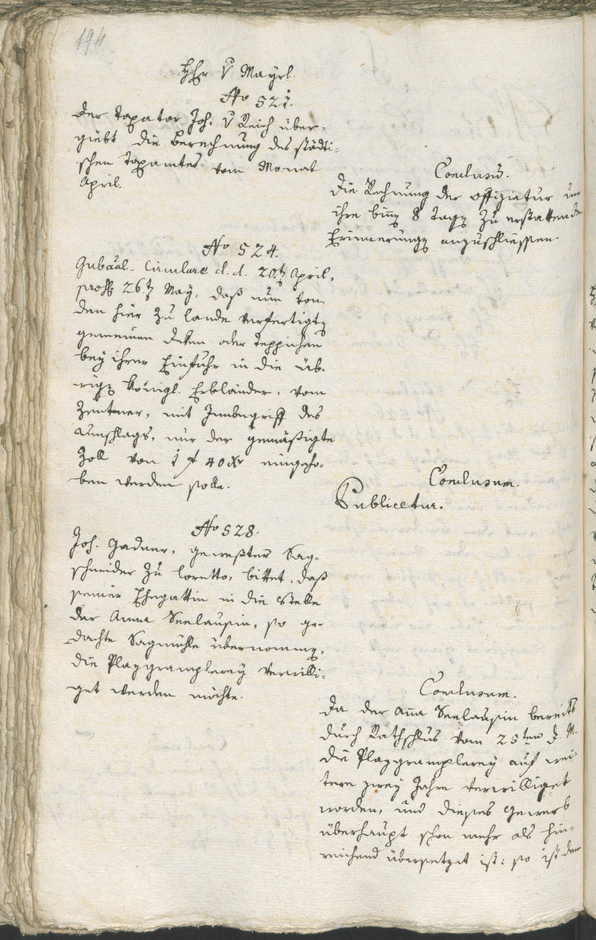 194
Hr. v Mayrl.
No 521.
Der Taxator Joh. v Reich über-
giebt die Berechnung des städti-
schen Taxamtes vom Monat
April.
Conclusum.
Die Rechnung der Offiziatur um
ihre binn 8 Tagen zu erstattende
Erinnerungen anzuschliessen.
No 524.
Gubernal-Circulare d. d. 20ten April,
26ten May, daß nun von
den hier zu Lande verfertigten
gemeinen Deken oder Teppichen
bey ihrer Einfuhr in die üb-
rigen königl. Erbländer, vom
Zentner, mit Innbegriff des
Umschlags, nur der gemäßigte
Zoll von 1 f 40 Xr eingeho-
ben werden solle.
Conclusum.
Publicetur.
No 528.
Joh. Gadner, gewester Sag-
schneider zu Loretto, bittet, daß
seiner Ehegattin in die Stelle
der Anna Seelausin, so ge-
dachte Sagmühle übernommen,
die Plazgramplerey verwilli-
get werden möchte.
Conclusum.
Da der Anna Seelausin bereits
durch Rathschluß vom 25ten d. M.
die Plazgramplerey auf wei-
tere zwey Jahre verwilliget
worden, und dieses Gewerb
überhaupt schon mehr als hin-
reichend übersetzet ist: so ist dem